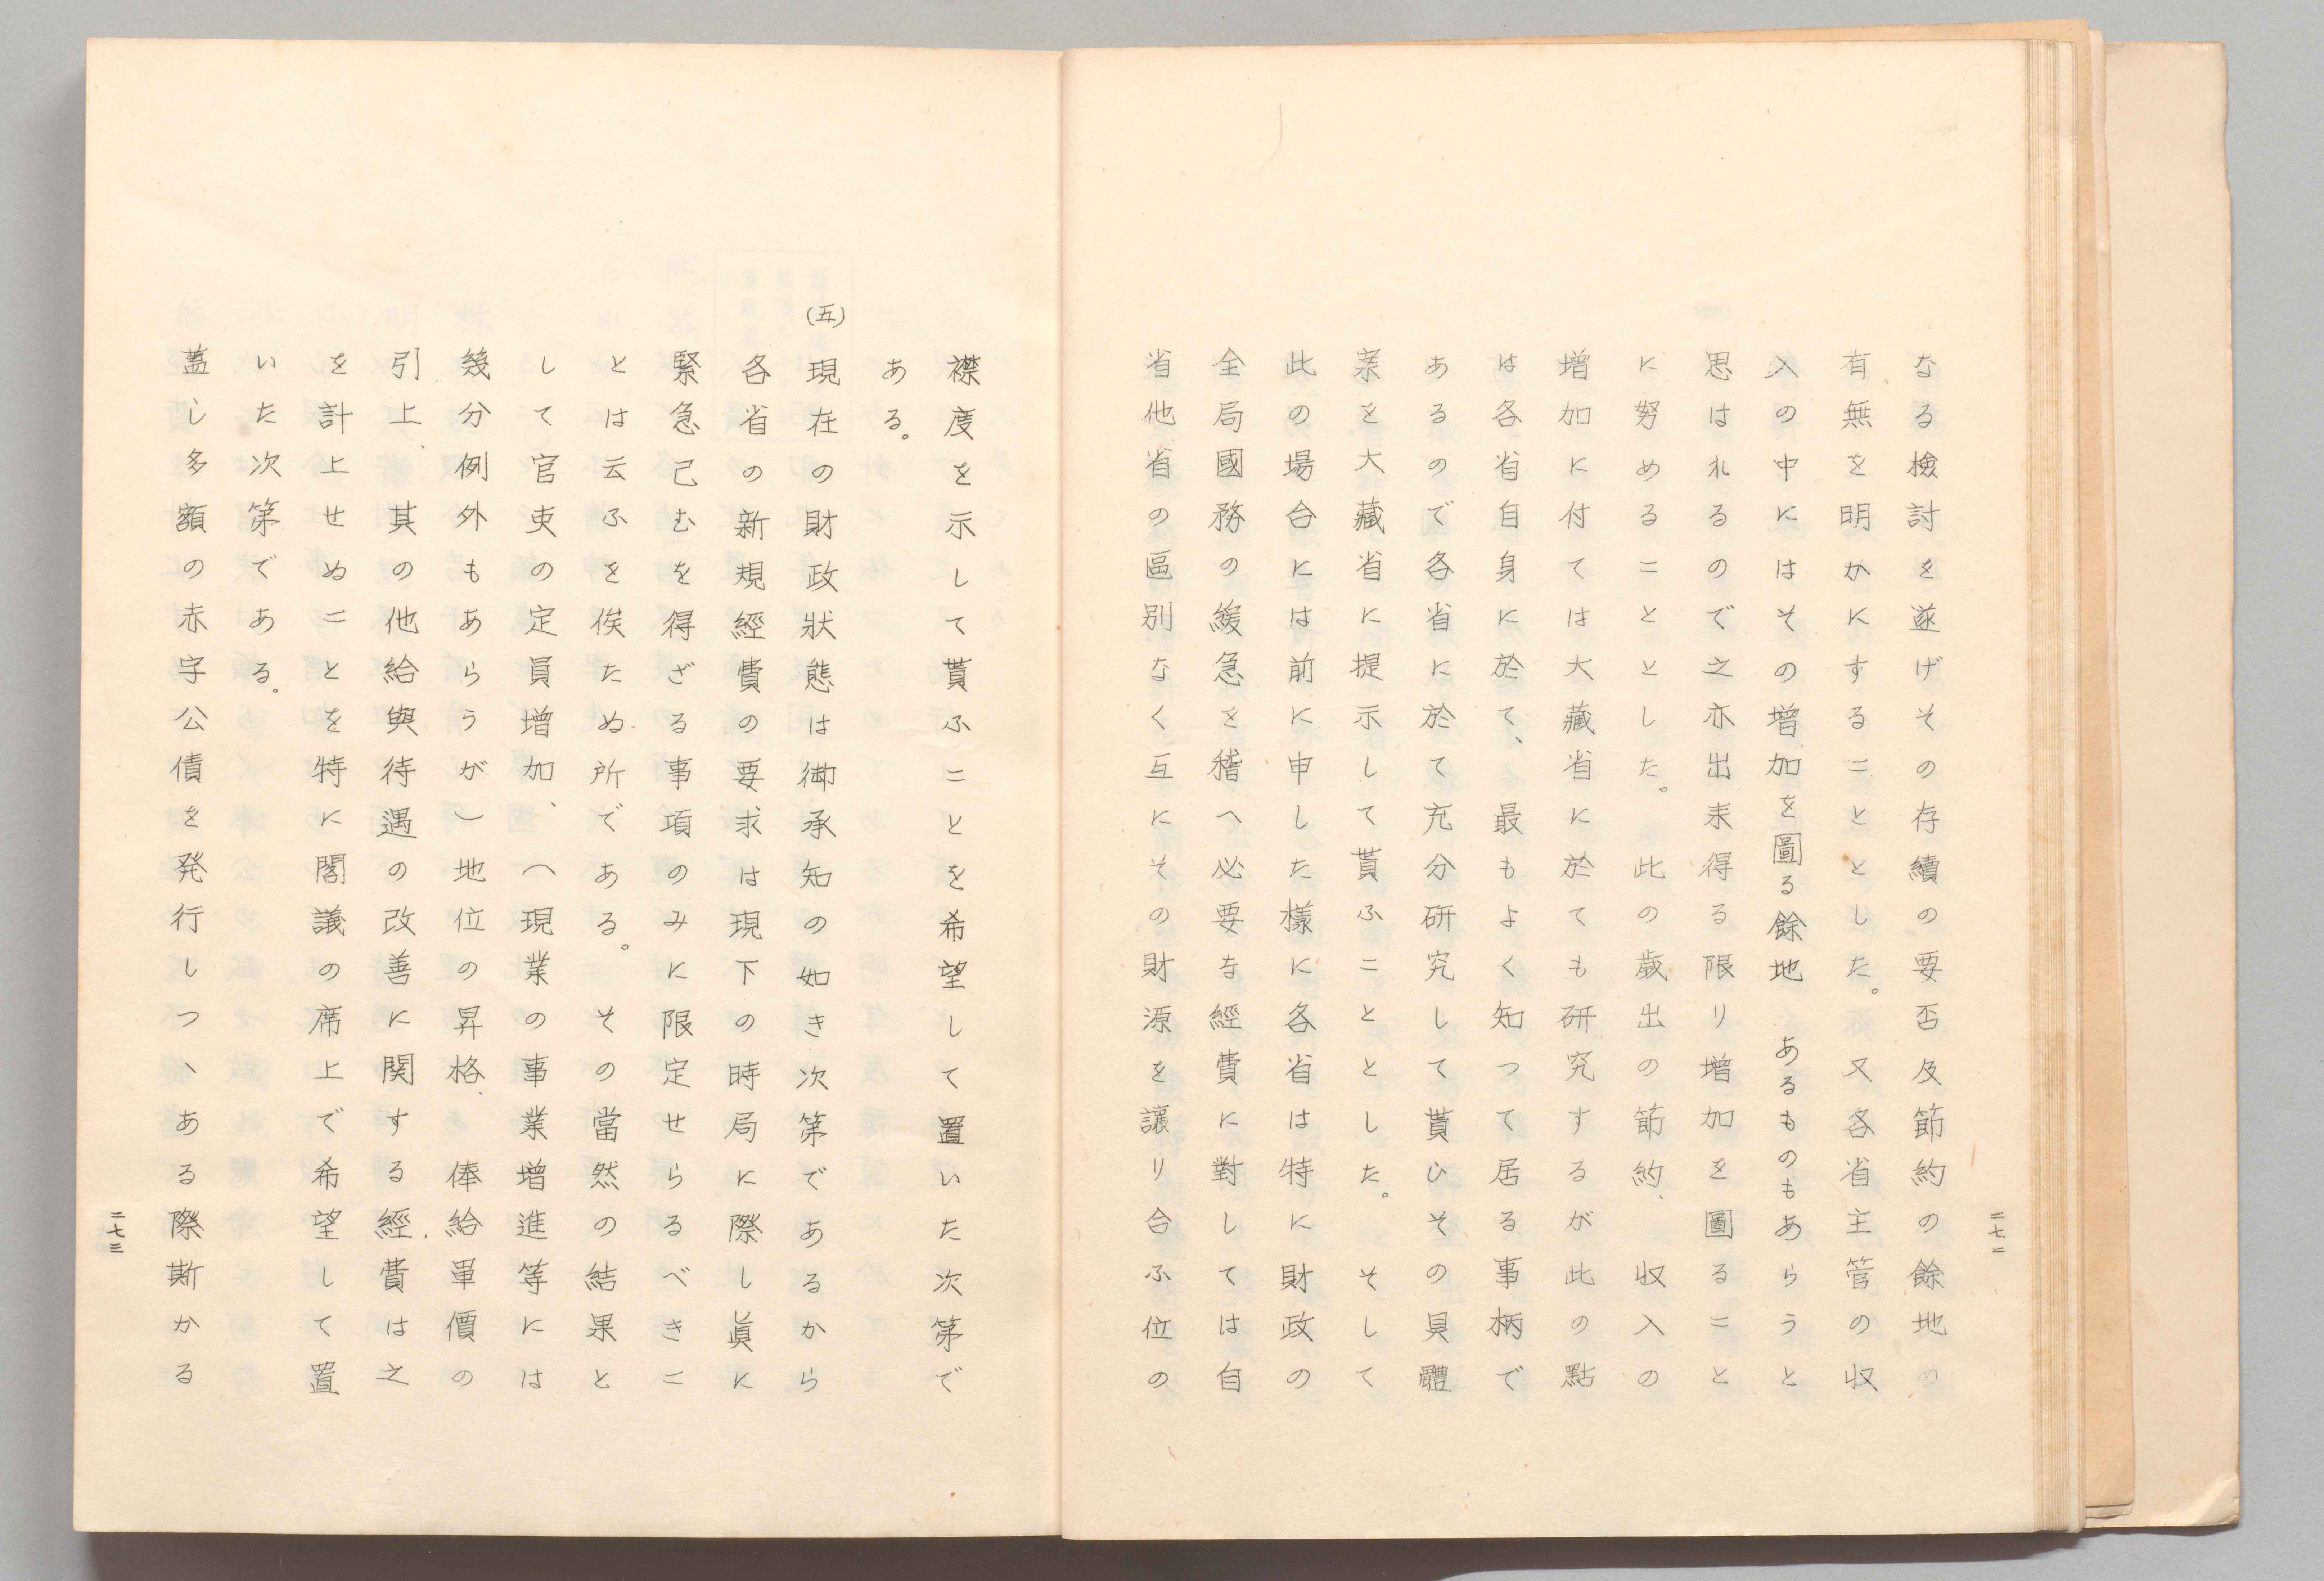 なる檢討を遂げその存續の要否及節約の餘地の
有無を明かにすることとした。又各省主管の収
入の中にはその増加を圖る餘地 あるものもあらうと
思はれるので之亦出来得る限リ増加を圖ること
に努めることとした。 此の歳出の節約、収入の
増加に付ては大藏省に於ても研究するが此の點
は各省自身に於て、最もよく知つて居る事柄で
あるので各省に於て充分研究して貰ひその具體
案を大藏省に提示して貰ふこととした。そして
此の場合には前に申した樣に各省は特に財政の
全局國務の緩急を稽へ必要な經費に對しては自
省他省の區別なく互にその財源を讓リ合ふ位の
二七二
襟度を示して貰ふことを希望して置いた次第で
ある。
(五)現在の財政狀態は御承知の如き次第であるから
各省の新規經費の要求は現下の時局に際し眞に
緊急己むを得ざる事項のみに限定せらるべきこ
とは云ふを俟たぬ所である。その當然の結果と
して官吏の定員増加、(現業の事業増進等には
幾分例外もあらうが)地位の昇格、俸給單價の
引上、其の他給與待遇の改善に関する經費は之
を計上せぬことを特に閣議の席上で希望して置
いた次第である。
蓋し多額の赤字公債を発行しつヽある際斯かる
二七三